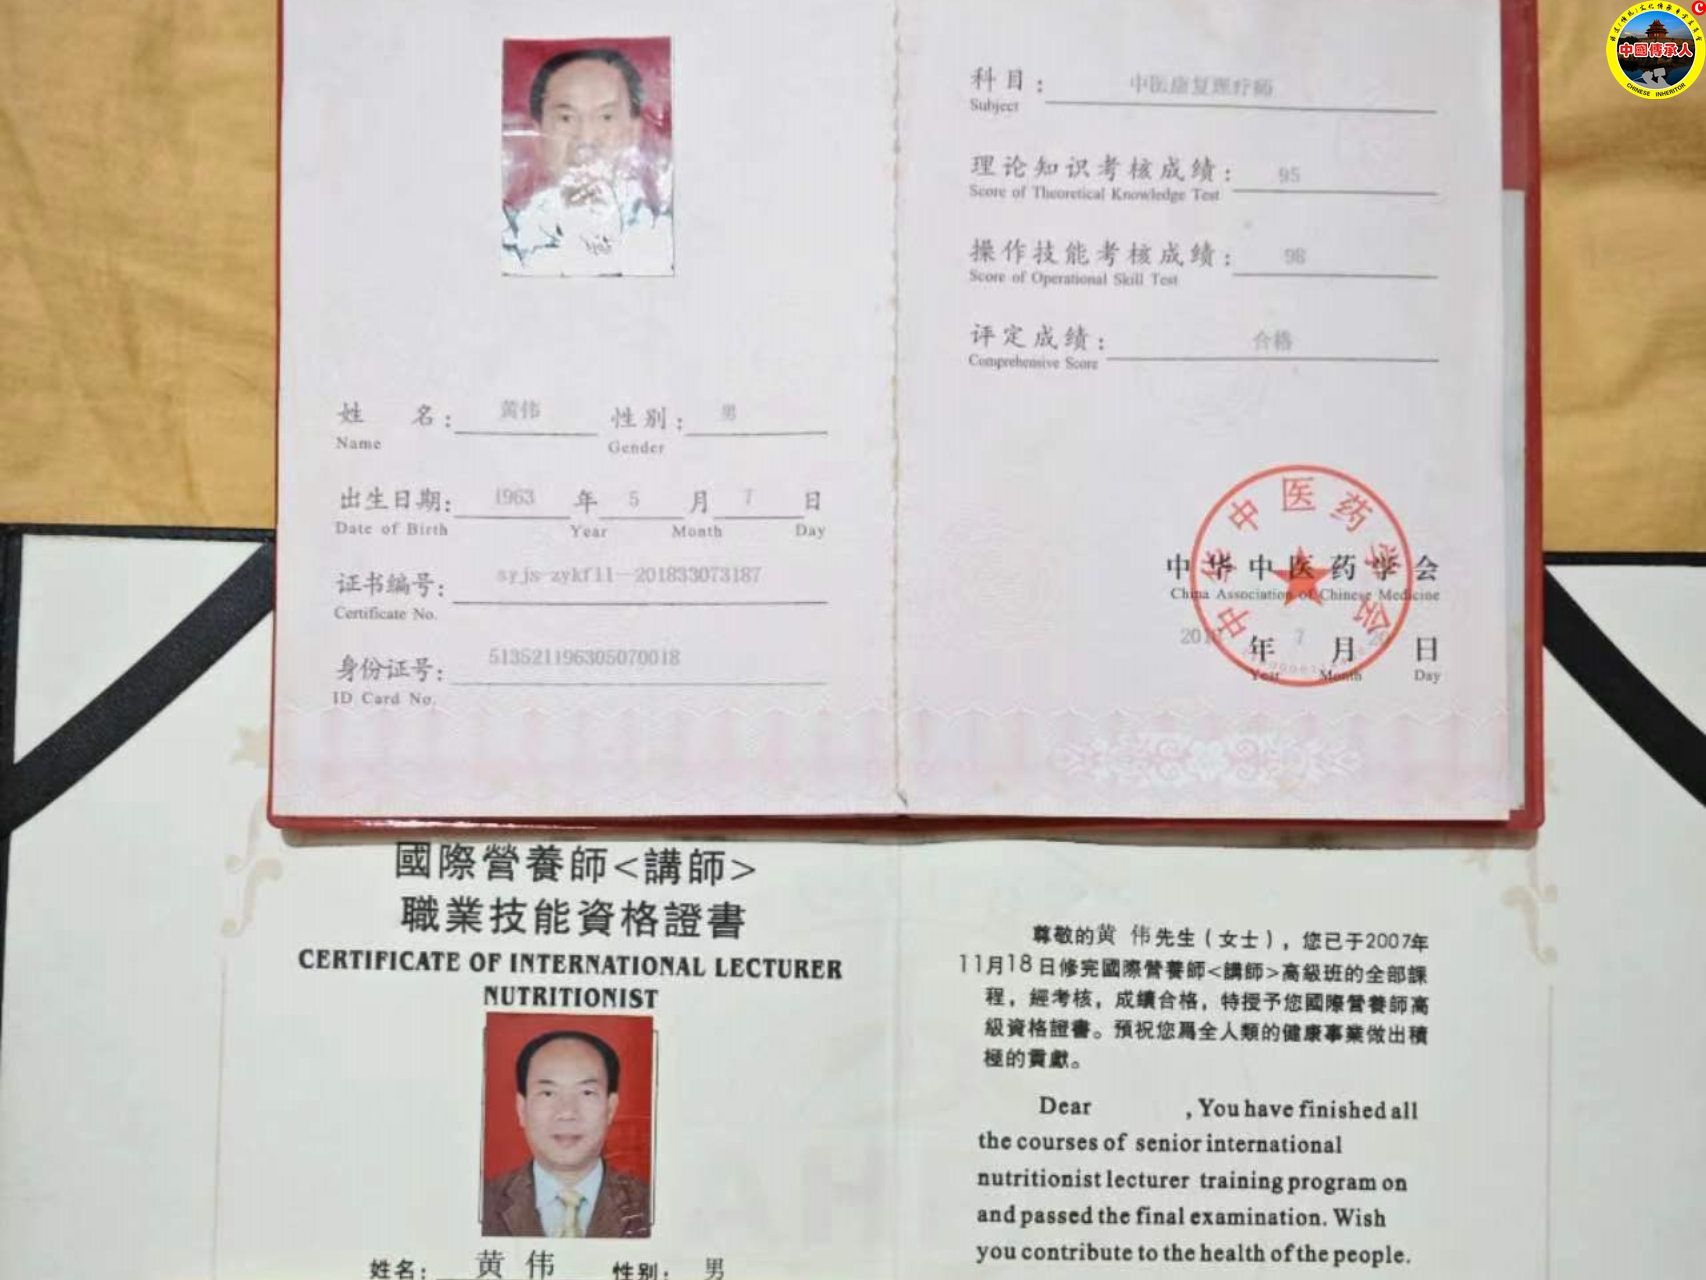 中國傳承人
CHINESE INHERITOR
科目：中医康复理疗师
Subject
理论知识考核成绩：95
Score of Theoretical Knowledge Test
操作技能考核成绩：98
Score of Operational Skill Test
评定成绩：合格
Comprehensive Score
姓 名：黄伟 性别：男
Name Gender
出生日期：1963 年 5 月 7 日
Date of Birth Year Month Day
证书编号：syjs-zykf11-201833073187
Certificate No.
身份证号：513521196305070018
ID Card No.
中华中医药学会
中华中医药学会
China Association of Chinese Medicine
年 7 月 日
Year Month Day
國際營養師<講師>
職業技能資格證書
CERTIFICATE OF INTERNATIONAL LECTURER
NUTRITIONIST
姓名：黄 伟 性别：男
尊敬的黄 伟先生（女士），您已于2007年
11月18日修完國際營養師<講師>高級班的全部課
程，經考核，成績合格，特授予您國際營養師高
級資格證書。預祝您爲全人類的健康事業做出積
極的貢獻。
Dear , You have finished all
the courses of senior international
nutritionist lecturer training program on
and passed the final examination. Wish
you contribute to the health of the people.